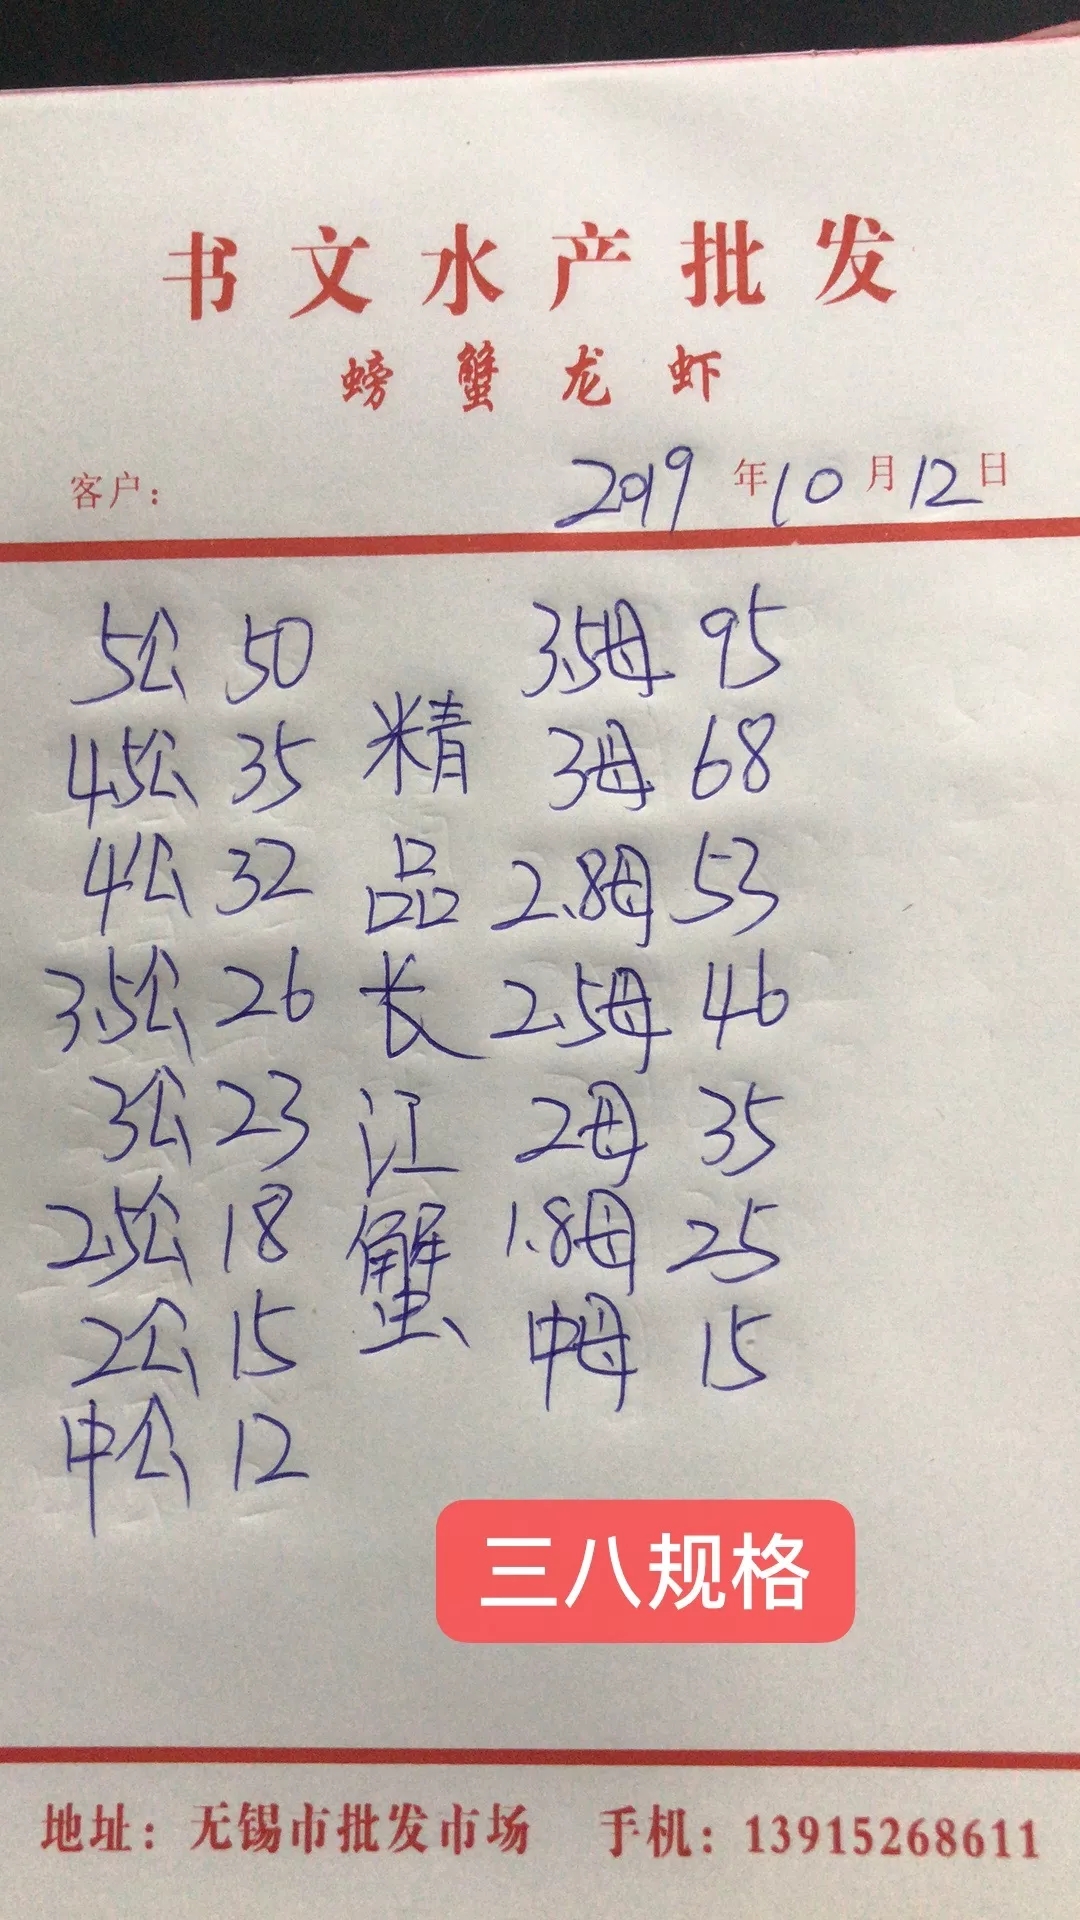 书文水产批发
螃蟹龙虾
客户： 2019年10月12日
5公 50
4.5公 35
4公 32
3.5公 26
3公 23
2.5公 18
2公 15
中公 12
精品长江蟹
3.5母 95
3母 68
2.8母 53
2.5母 46
2母 35
1.8母 25
中母 15
三八规格
地址：无锡市批发市场 手机：13915268611